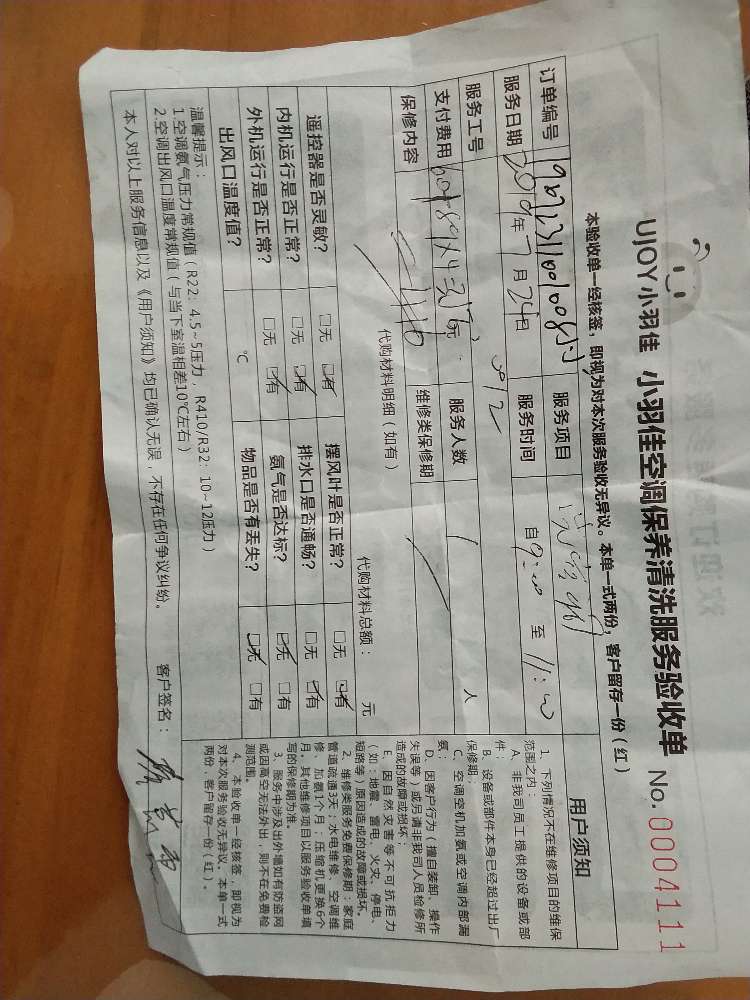 UJOY小羽佳 小羽佳空调保养清洗服务验收单 No. 0004111
本验收单一经核签，即视为对本次服务验收无异议。本单一式两份，客户留存一份（红）
订单编号 服务项目
服务日期 2019年7月24日 服务时间 自9:00 至 11:00
服务工号 812 服务人数 1 人
支付费用 元
保修内容 维修类保修期
代购材料明细（如有） 代购材料总额： 元
遥控器是否灵敏？ □无 □有 摆风叶是否正常？ □无 □有
内机运行是否正常？ □无 □有 排水口是否通畅？ □无 □有
外机运行是否正常？ □无 □有 氨气是否达标？ □无 □有
出风口温度值？ ℃ 物品是否有丢失？ □无 □有
温馨提示：
1.空调氨气压力常规值（R22：4.5~5压力，R410/R32：10~12压力）
2.空调出风口温度常规值（与当下室温相差10℃左右）
本人对以上服务信息以及《用户须知》均已确认无误，不存在任何争议纠纷。 客户签名：
用户须知
1、下列情况不在维修项目的维保
范围之内：
A、非我司员工提供的设备或部
件；
B、设备或部件本身已经超过出厂
保修期；
C、空调空机加氨或空调内部漏
氨；
D、因客户行为（擅自装卸、操作
失误等）或另请非我司人员检修所
造成的故障或损坏；
E、因自然灾害等不可抗拒力
（如：地震、雷电、火灾、停电、
短路等）原因造成的故障或损坏。
2、维修类服务免费保修期：家庭
管道疏通3天；水电维修、空调维
修、加氨1个月；压缩机更换6个
月。其他维修项目以服务验收单填
写的保修期为准。
3、服务中涉及出外墙如有防盗网
或因高空无法外出，则不在免费检
测范围。
4、本验收单一经核签，即视为
对本次服务验收无异议。本单一式
两份，客户留存一份（红）。